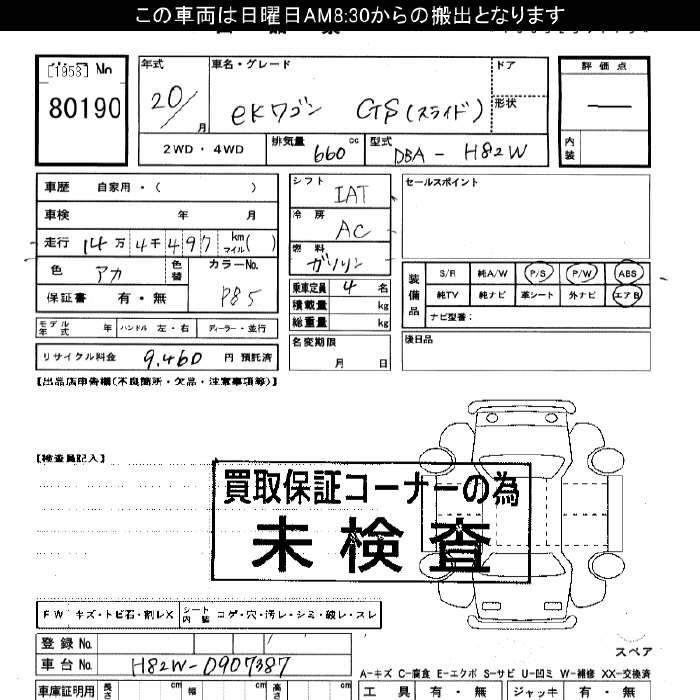 この車両は日曜日AM8:30からの搬出となります
[1953] No
80190
年式
20/
月
車名・グレード
eKワゴン GS(スライド)
ドア
形状
評価点
—
内装
2WD・4WD
排気量
660 cc
型式
DBA - H82W
車歴 自家用・( )
車検 年 月
走行 14万4千497 km マイル( )
色 アカ
色替
カラーNo.
P85
保証書 有・無
モデル年式 年
ハンドル 左・右
ディーラー・並行
リサイクル料金 9,460 円 預託済
シフト IAT
冷房 AC
燃料 ガソリン
乗車定員 4 名
積載量 kg
総重量 kg
名変期限
月 日
セールスポイント
装備品
S/R 純A/W P/S P/W ABS
純TV 純ナビ 革シート 外ナビ エアB
ナビ型番:
後日品
【出品店申告欄(不良箇所・欠品・注意事項等)】
【検査員記入】
買取保証コーナーの為
未検査
FW キズ・トビ石・割レX
シート内装 コゲ・穴・汚レ・シミ・破レ・スレ
登録No.
車台No. H82W-0907387
車庫証明用 長さ cm 幅 cm 高さ cm
スペア
A-キズ C-腐食 E-エクボ S-サビ U-凹ミ W-補修 XX-交換済
工具 有・無 ジャッキ 有・無